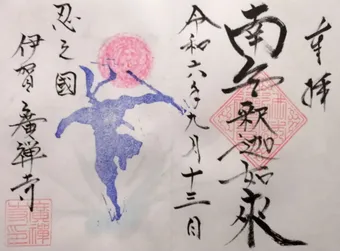 奉拝
南無釈迦如來
令和六年九月十三日
忍之國
伊賀 廣禅寺